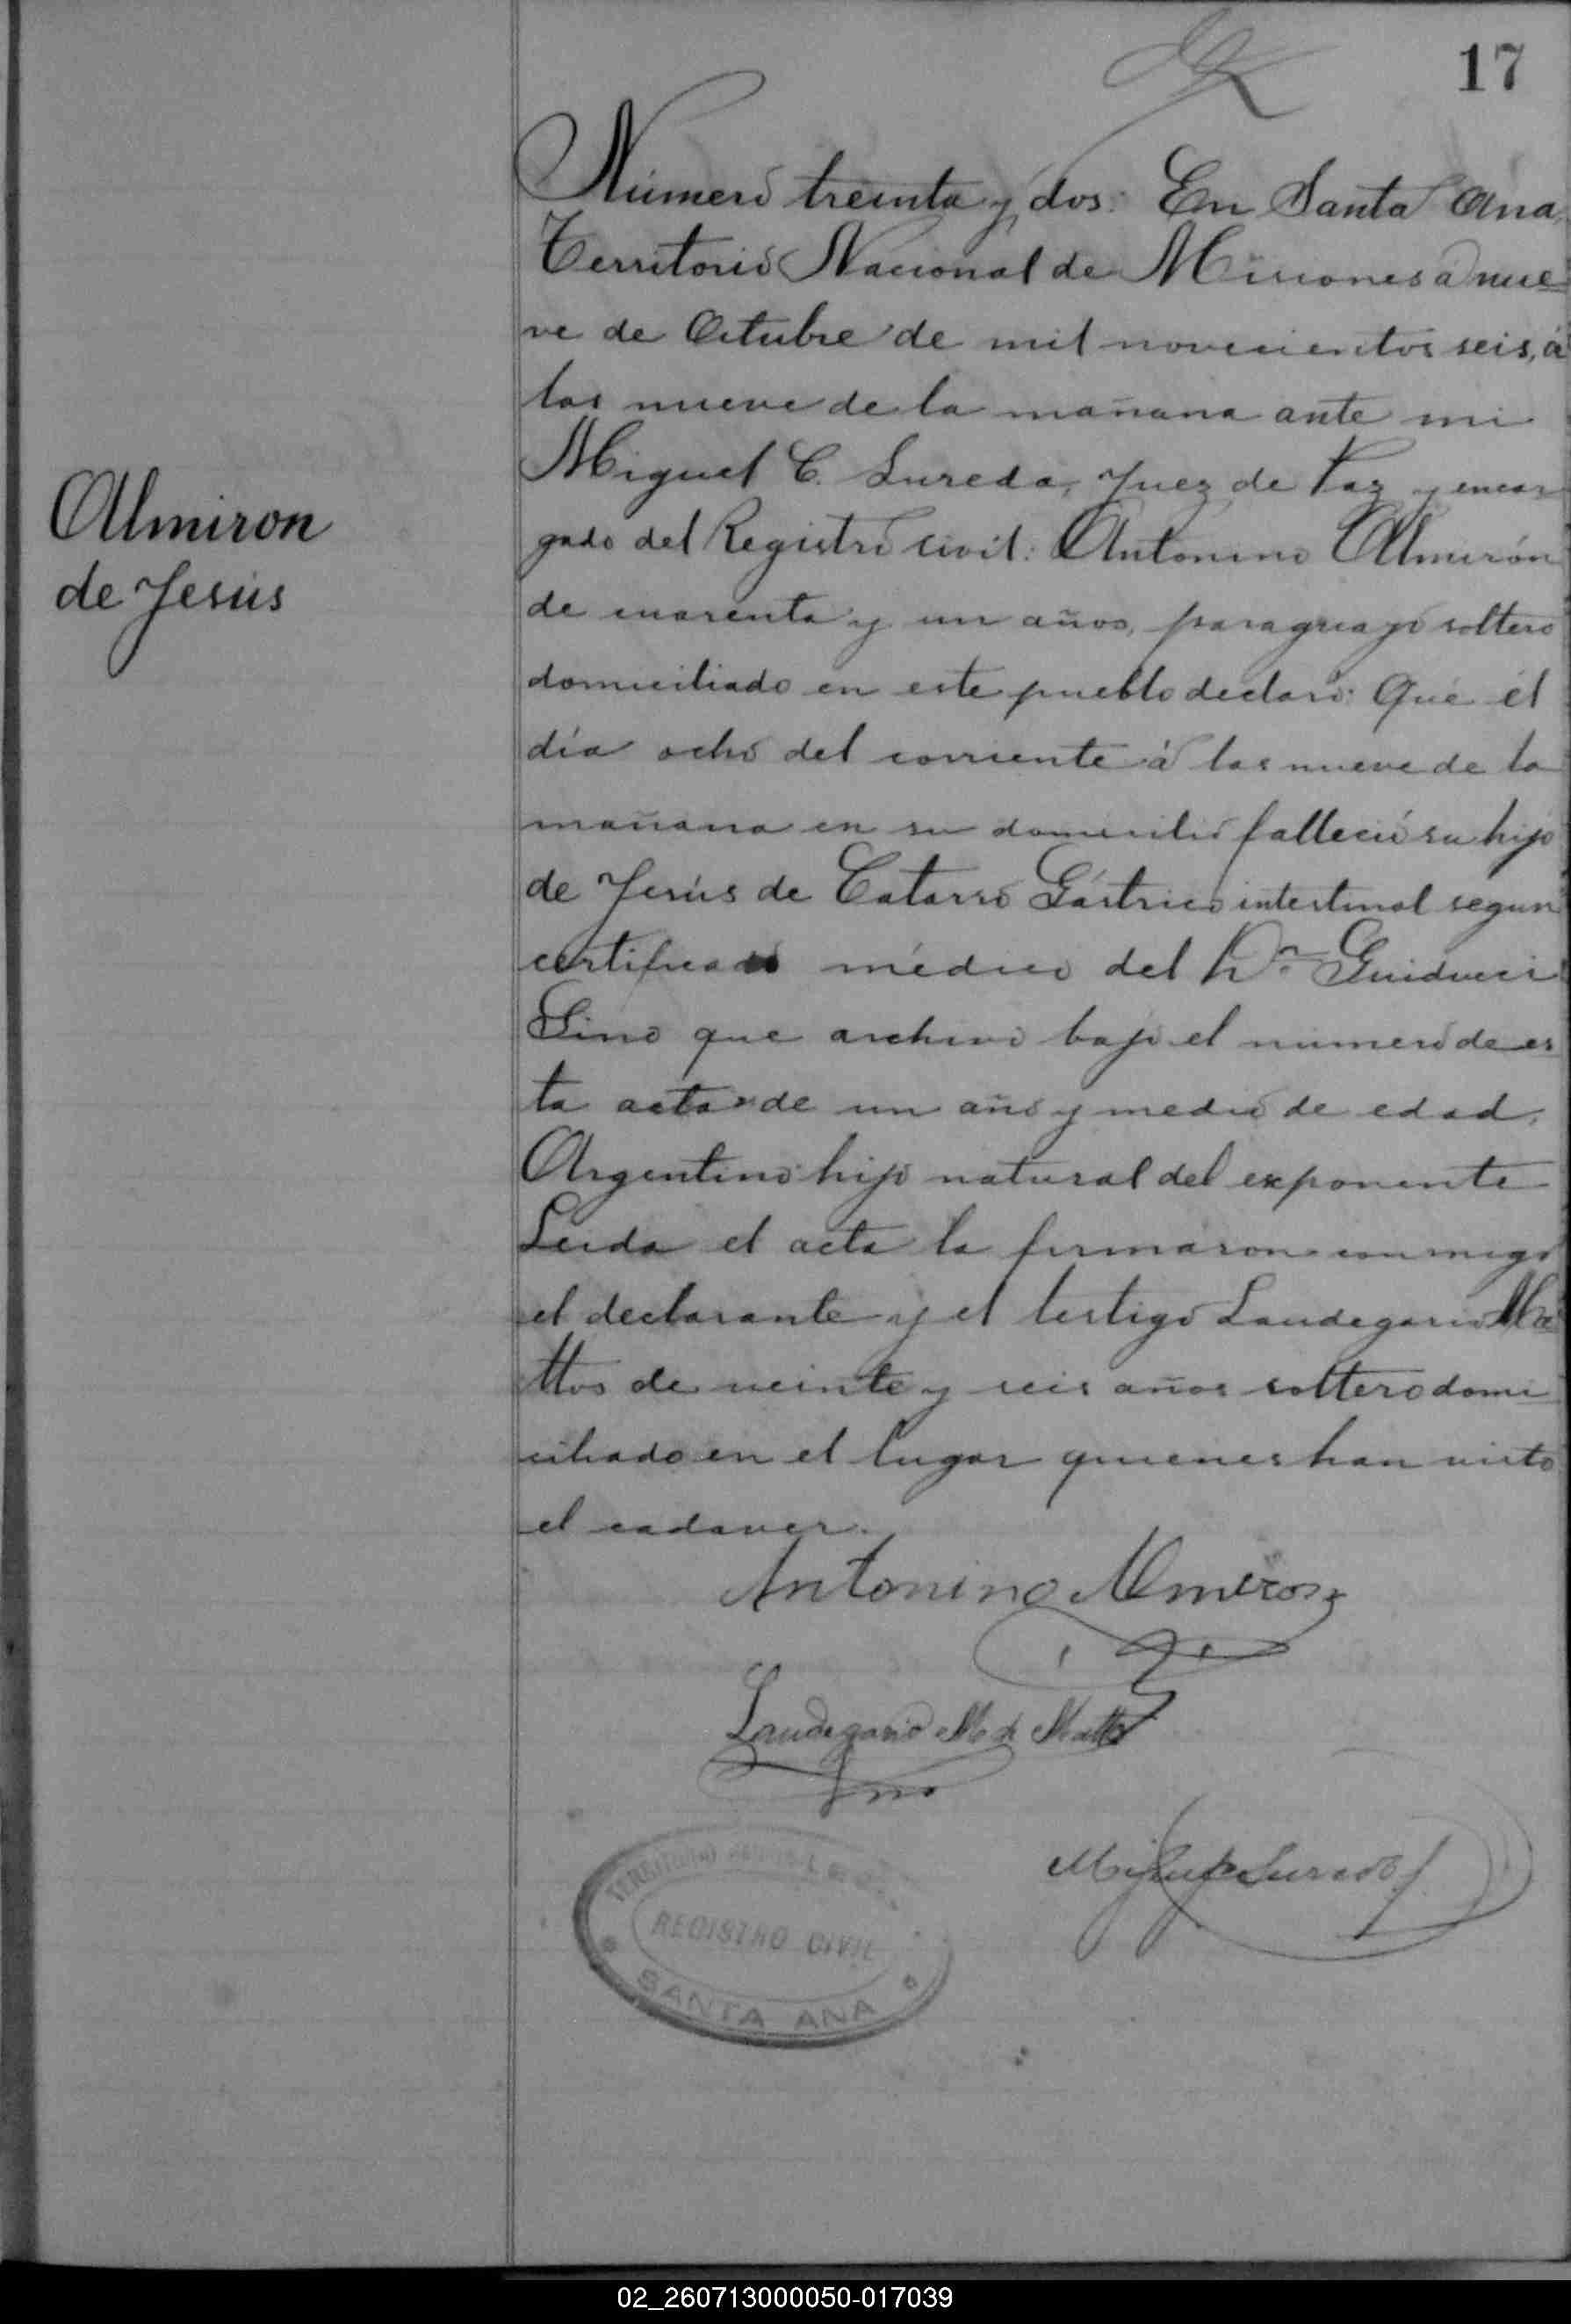 17
Número treinta y dos: En Santa Ana,
Territorio Nacional de Misiones a nue-
ve de Octubre de mil novecientos seis, á
las nueve de la mañana ante mi
Miguel C. Sureda, Juez de Paz y encar
gado del Registro civil: Antonino Almirón
de cuarenta y un años, paraguayo soltero
domiciliado en este pueblo declaró: Que él
día ocho del corriente á las nueve de la
mañana en su domicilio falleció su hijo
de Jesús de Catarro Gástrico intestinal segun
certificado médico del Dr. Guiducci
Lino que archivo bajo el numero de es
ta acta de un año y medio de edad,
Argentino hijo natural del exponente
Leida el acta la firmaron conmigo
el declarante y el testigo Laudegario Ma
ttos de veinte y seis años soltero domi
ciliado en el lugar quienes han visto
el cadaver.
Almiron
de Jesús
Antonino Almiron
Laudegario M. de Mattos
Miguel C Sureda
TERRITORIO NACIONAL DE
REGISTRO CIVIL
SANTA ANA
02_260713000050-017039